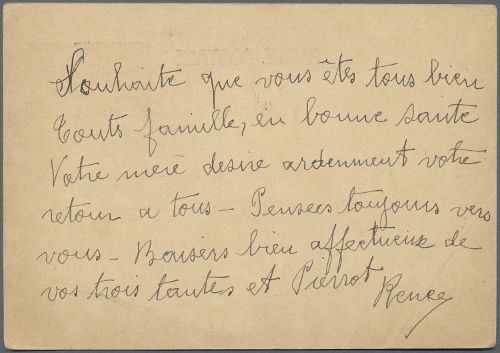 Souhaite que vous êtes tous bien
Touts famille, en bonne sante
Votre mere desire ardenment votre
retour a tous - Pensees toujours vers
vous - Baisers bien affectueux de
vos trois tantes et Pierrot
Renee